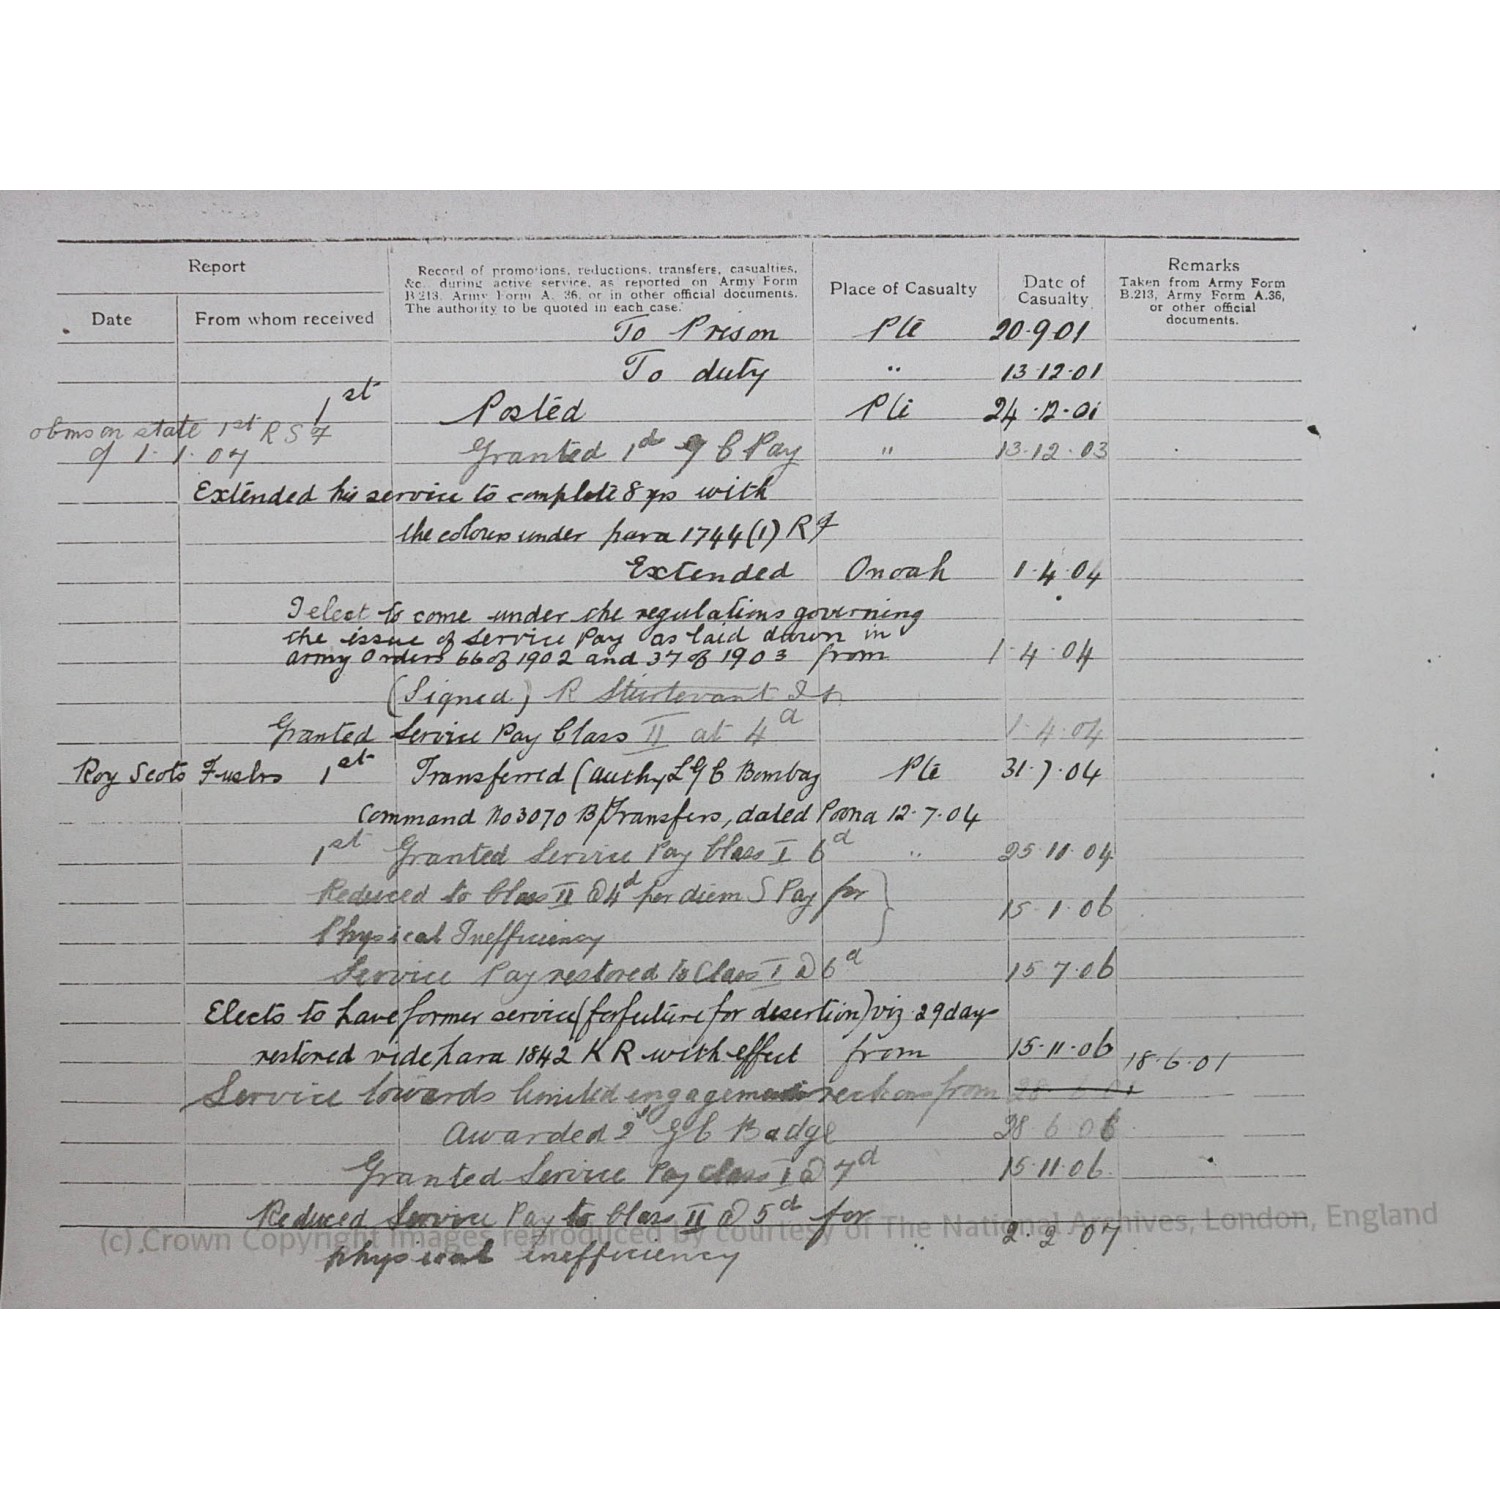 Report
Record of promotions, reductions, transfers, casualties,
&c., during active service, as reported on Army Form
B.213, Army Form A. 36, or in other official documents.
The authority to be quoted in each case.
Place of Casualty
Date of
Casualty
Remarks
Taken from Army Form
B.213, Army Form A.36,
or other official
documents.
Date
From whom received
To Prison Pte 20.9.01
To duty " 13.12.01
1st Posted Pte 24.12.01
state 1st R S F
of 1.1.07
Granted 1st G C Pay " 13.12.03
Extended his service to complete 8 yrs with
the colours under para 1744(1) R F
Extended 1.4.04
I elect to come under the regulations governing
the issue of Service Pay as laid down in
Army Orders 66 of 1902 and 37 of 1903 from 1.4.04
(Signed) R Sturtevant
Granted Service Pay Class II at 4d 1.4.04
Roy Scots Fuslrs 1st Transferred (authy L G C Bombay Pte 31.7.04
Command No 3070 B/Transfers, dated Poona 12.7.04
1st Granted Service Pay Class I 6d " 25.11.04
Reduced to Class II @ 4d per diem S Pay for
Physical Inefficiency 15.1.06
Service Pay restored to Class I @ 6d 15.7.06
Elects to have former service (forfeiture for desertion) viz 29 days
restored vide para 1842 K R with effect from 15.11.06
18.6.01
Service towards limited engagement reckons from 28.6.01
Awarded 2d G C Badge 28.6.06
Granted Service Pay Class I @ 7d 15.11.06
Reduced Service Pay to Class II @ 5d for
physical inefficiency " 2.2.07
(c) Crown Copyright Images reproduced by courtesy of The National Archives, London, England